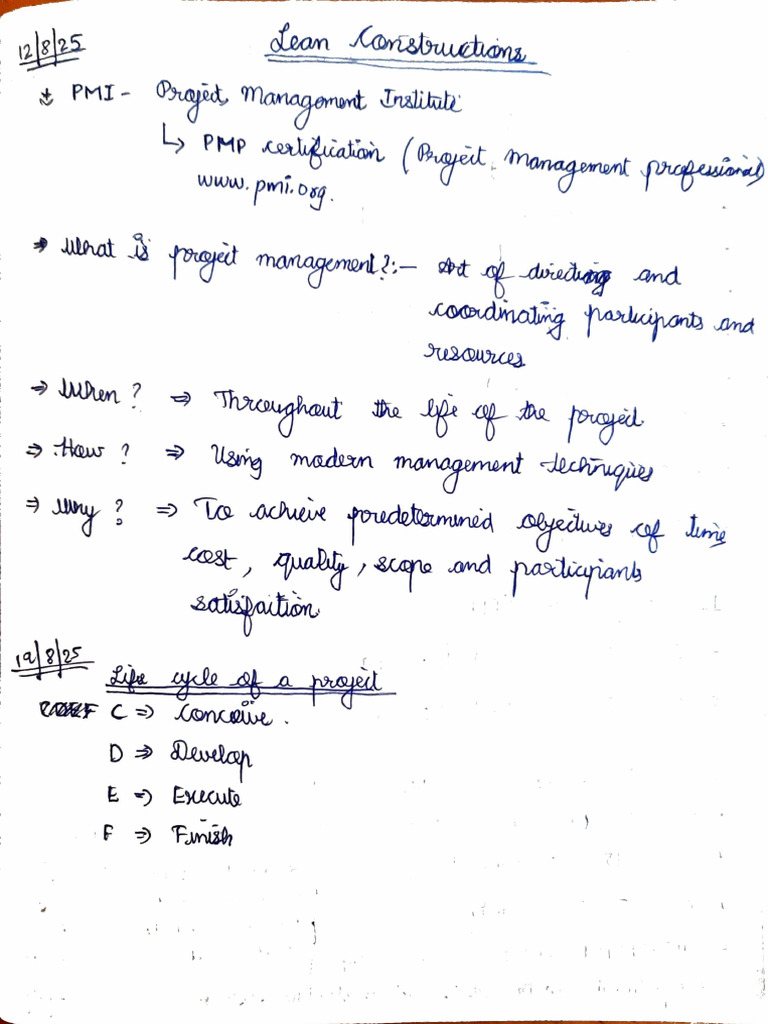 12/8/25
Lean Constructions
* PMI - Project Management Institute
↳ PMP certification (Project management professional)
www.pmi.org.
→ What is project management?:- Art of directing and
coordinating participants and
resources
⇒ When? ⇒ Throughout the life of the project
⇒ How? ⇒ Using modern management techniques
⇒ Why? ⇒ To achieve predetermined objectives of time
cost, quality, scope and participants
satisfaction
19/8/25
Life cycle of a project
C ⇒ Conceive.
D ⇒ Develop
E ⇒ Execute
F ⇒ Finish